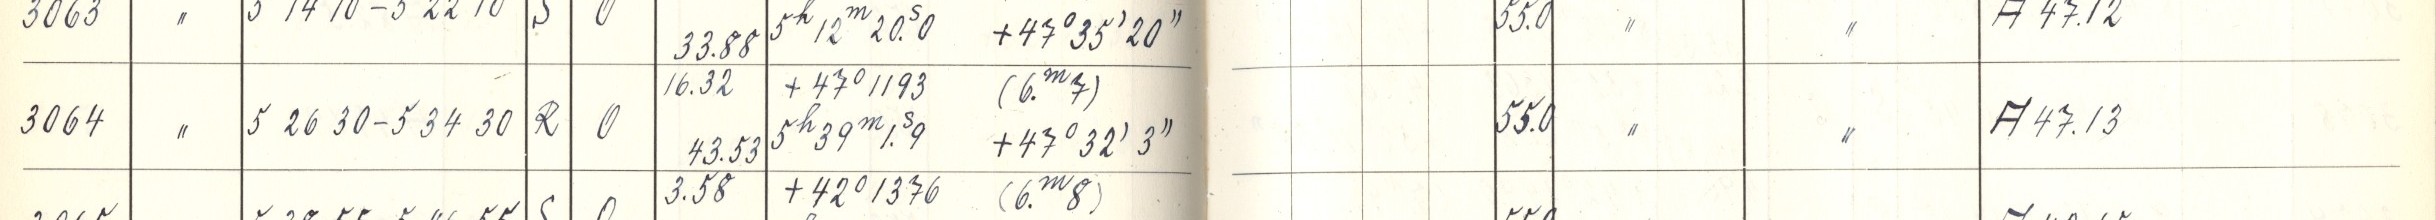 3063 " 5 14 10 - 5 22 10 S 0 33.88 5ʰ 12ᵐ 20.ˢ0 +47° 35' 20" 55.0 " " A 47.12
16.32 +47° 1193 (6.ᵐ7)
3064 " 5 26 30 - 5 34 30 R 0 5ʰ 39ᵐ 1.ˢ9 55.0 " " A 47.13
43.53 +47° 32' 3"
3.58 +42° 1376 (6.ᵐ8)